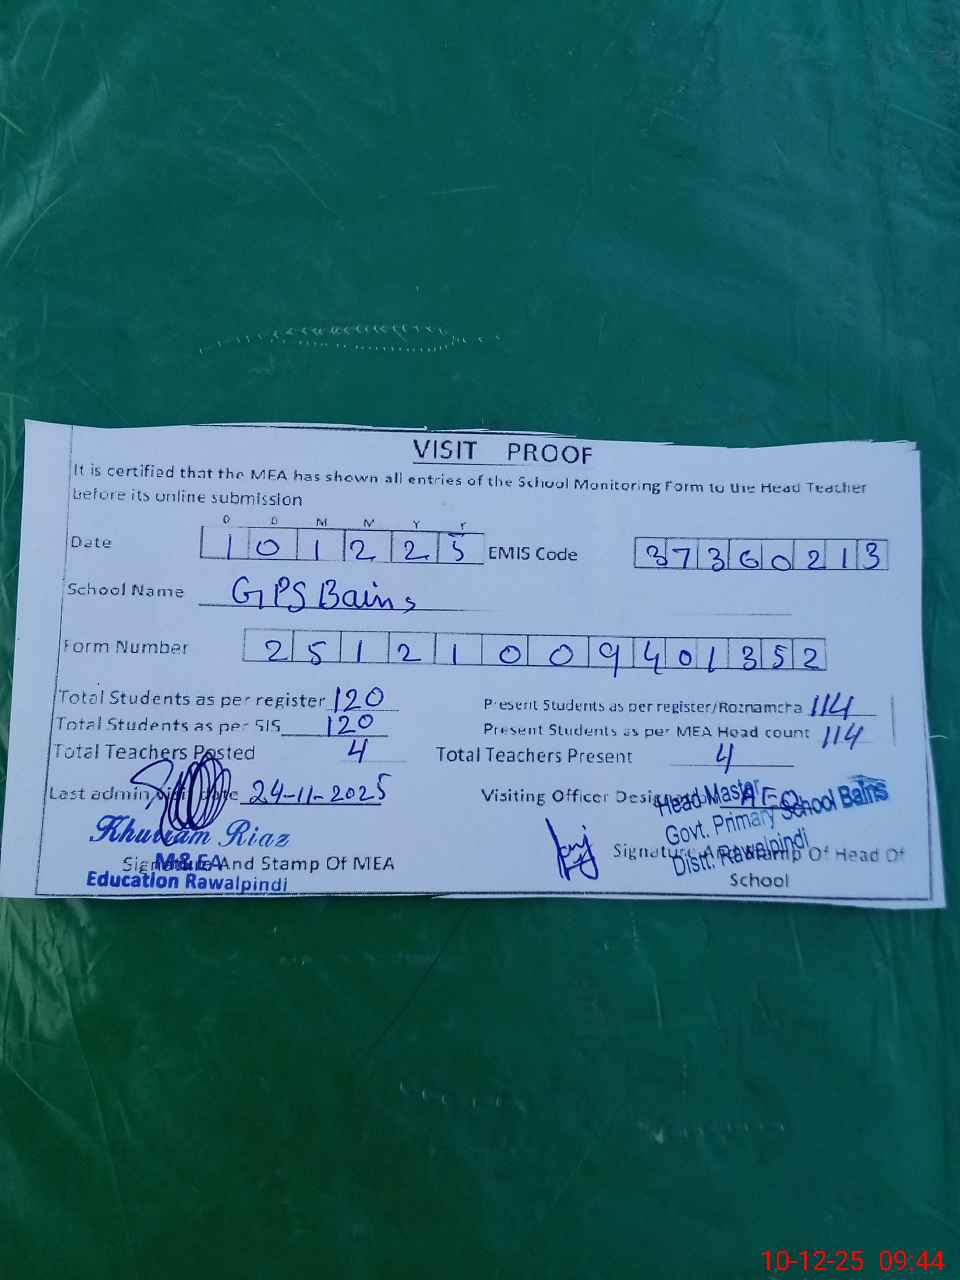 VISIT PROOF
It is certified that the MEA has shown all entries of the School Monitoring Form to the Head Teacher
before its online submission
D D M M Y Y
Date 1 0 1 2 2 5 EMIS Code 3 7 3 6 0 2 1 3
School Name GPS Bains
Form Number 2 5 1 2 1 0 0 9 4 0 1 3 5 2
Total Students as per register 120 Present Students as per register/Roznamcha 114
Total Students as per SIS 120 Present Students as per MEA Head count 114
Total Teachers Posted 4 Total Teachers Present 4
Last admin visit date 24-11-2025 Visiting Officer Designation AEO
Khurram Riaz
M&EA
Education Rawalpindi
Signature And Stamp Of MEA
Head Master
Govt. Primary School Bains
Distt. Rawalpindi
Signature And Stamp Of Head Of
School
10-12-25 09:44